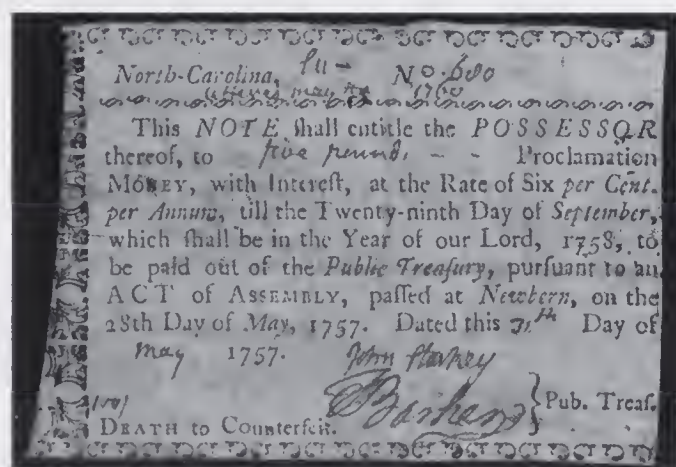 North-Carolina, No. 680
may 1760
This NOTE ſhall entitle the POSSESSOR
thereof, to five pounds, - - Proclamation
MONEY, with Intereſt, at the Rate of Six per Cent.
per Annum, till the Twenty-ninth Day of September,
which ſhall be in the Year of our Lord, 1758, to
be paid out of the Public Treaſury, purſuant to an
ACT of ASSEMBLY, paſſed at Newbern, on the
28th Day of May, 1757. Dated this 31th Day of
may 1757. John
Pub. Treaſ.
DEATH to Counterfeit.